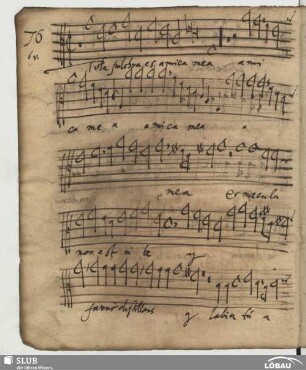 76
6 v.
Tota pulchra es amica mea ami
ca me a amica mea a
mea et macula
non est in te ij
favus distillans ij labia tu a
SLUB
Wir führen Wissen.
LÖBAU